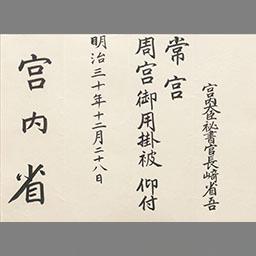 宮内大臣秘書官長崎省吾
常宮
周宮御用掛被仰付
明治三十年十二月二十八日
宮内省